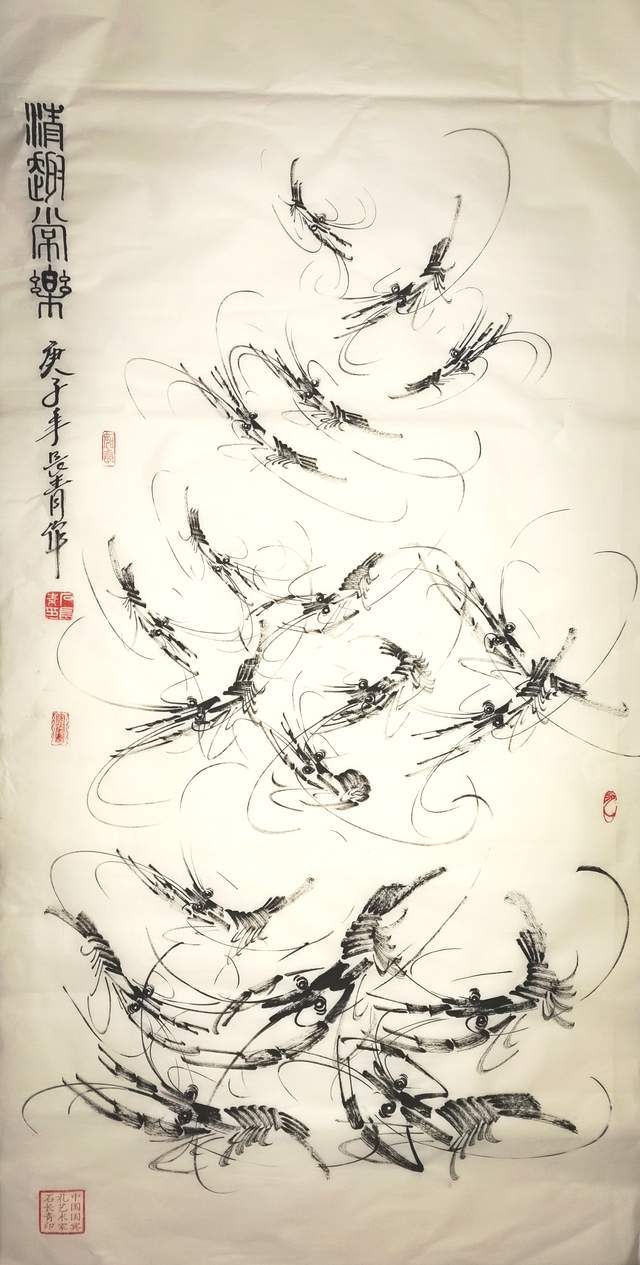 清趣常樂
庚子年长青作
中国国宾
礼艺术家
石长青印